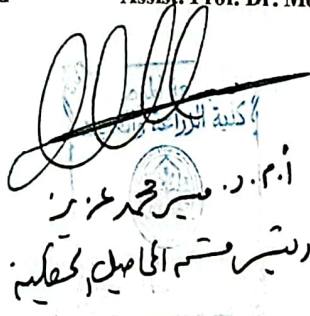 Assist. Prof. Dr. M
كلية الزراعة
أ.م.د. ميسر محمد عزيز
رئيس قسم المحاصيل الحقلية